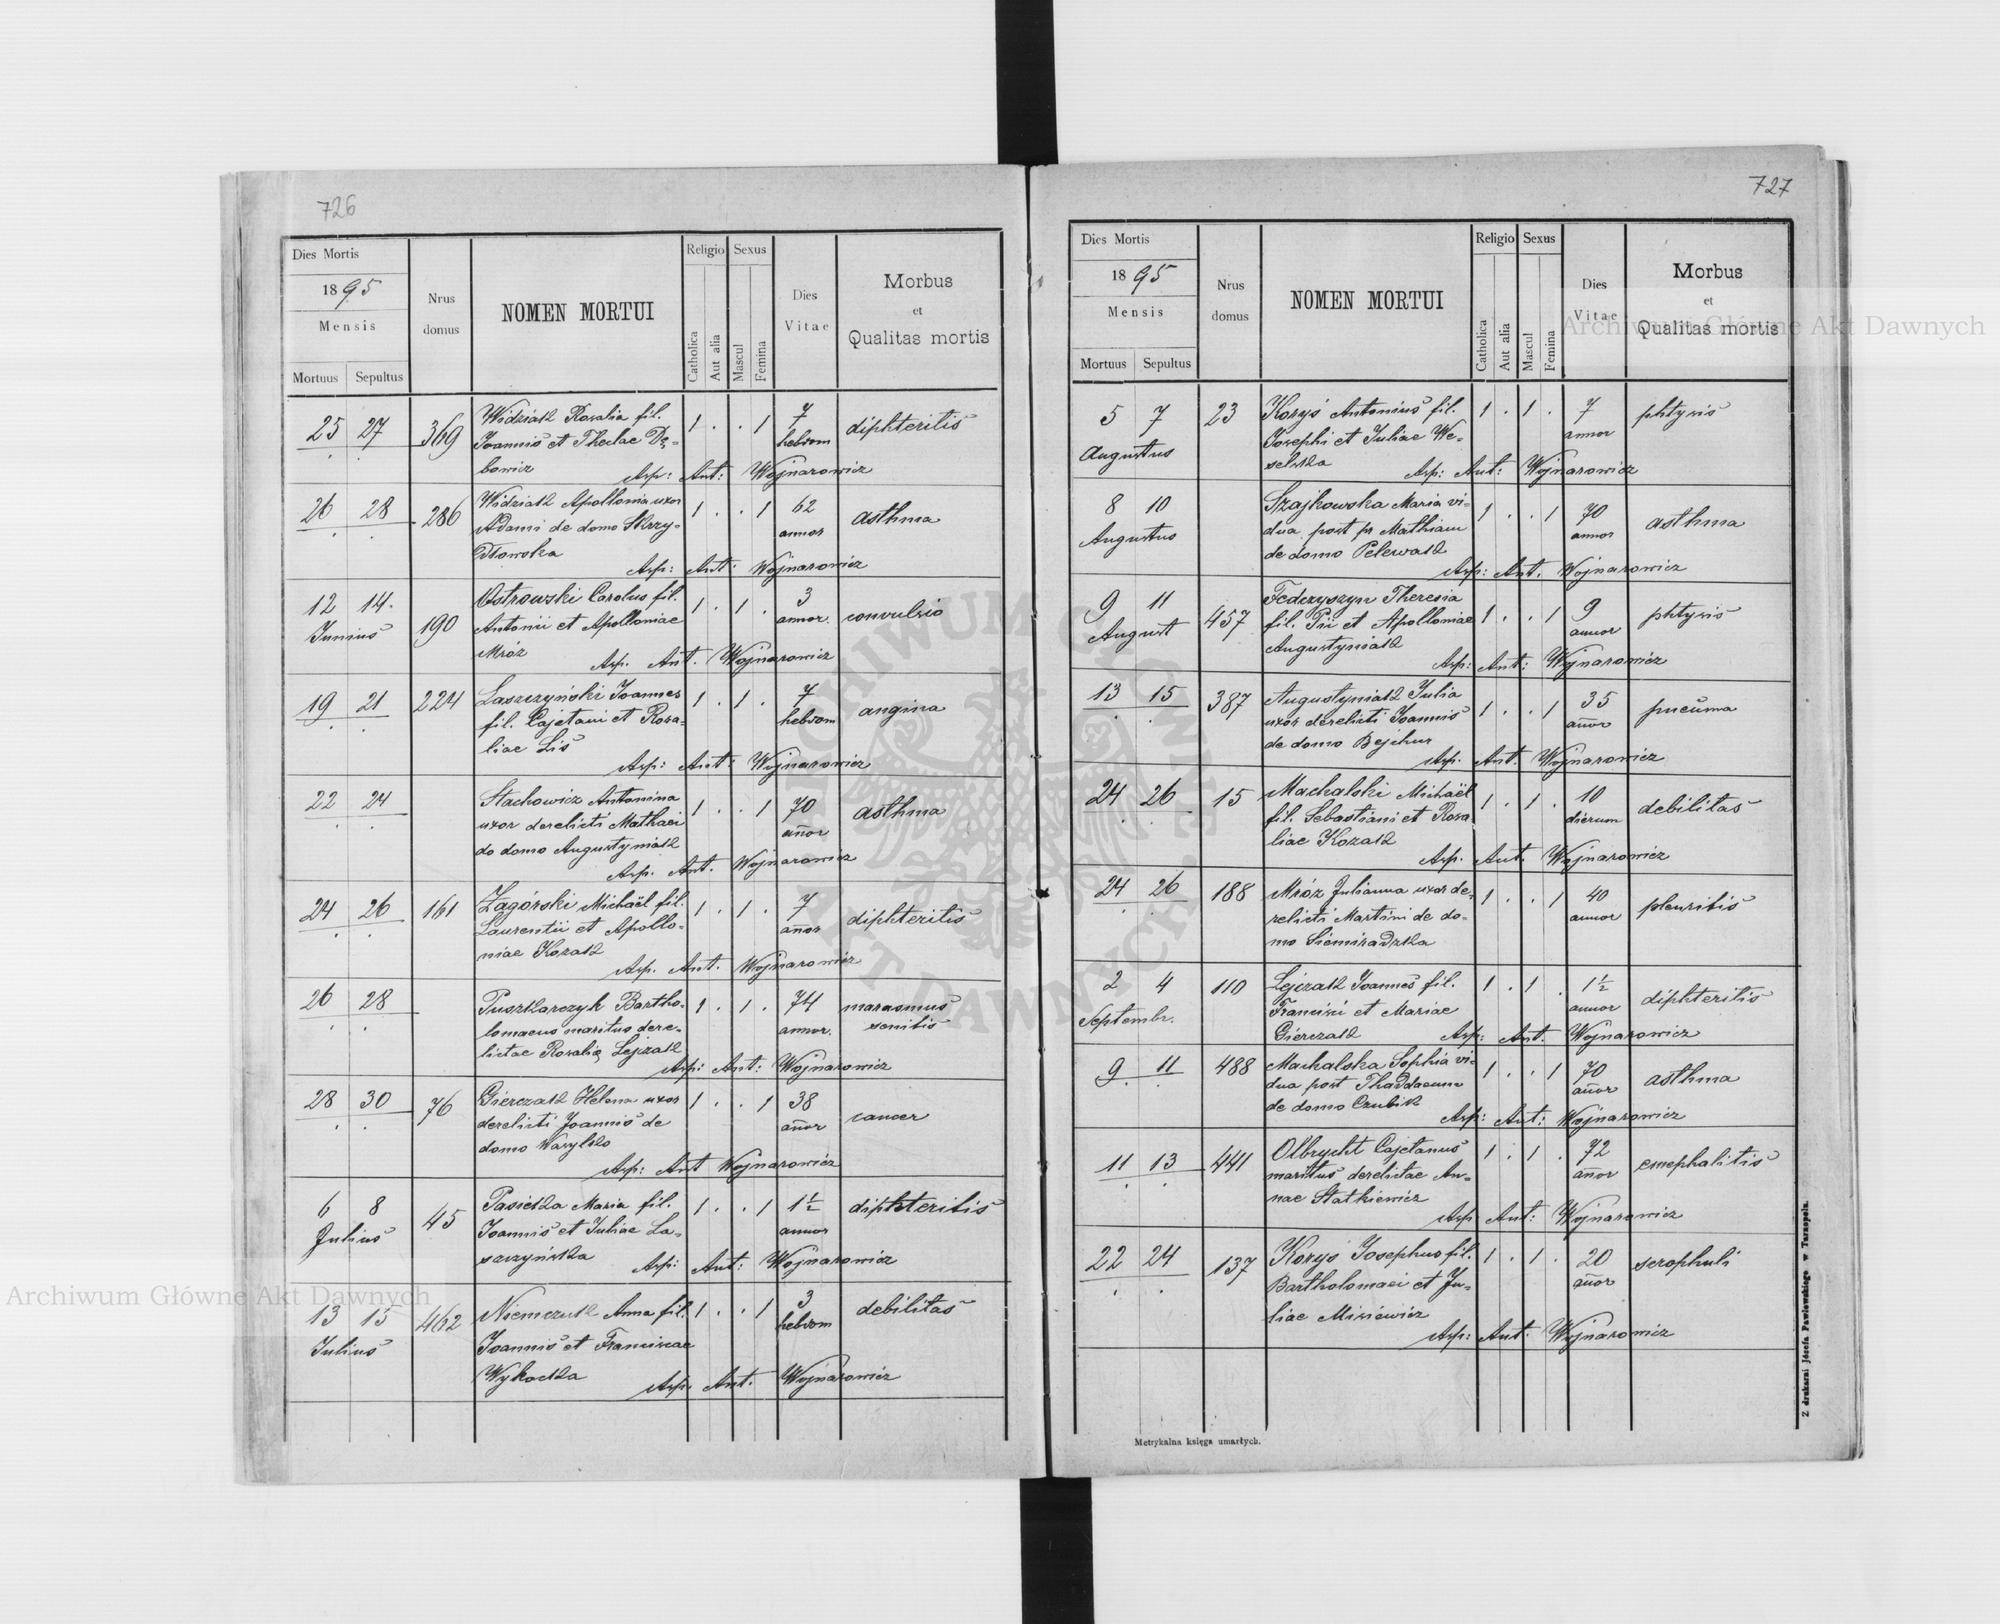 726
Dies Mortis
1895
Mensis
Mortuus Sepultus
Nrus domus
NOMEN MORTUI
Religio
Catholica
Aut alia
Sexus
Mascul
Femina
Dies Vitae
Morbus
et
Qualitas mortis
25 27 369 Widziak Rosalia fil. 1 . . 1 7 hebdom diphteritis
Joannis et Theclae Dę-
bowicz Asp: Ant: Wojnarowicz
26 28 286 Widziak Apollonia uxor 1 . . 1 62 annor asthma
Adami de domo Skrzy-
dłowska Asp: Ant: Wojnarowicz
12 14. Junius 190 Ostrowski Carolus fil. 1 . 1 . 3 annor. convulsio
Antonii et Apolloniae
Mróz Asp. Ant. Wojnarowicz
19 21 224 Laszczyński Joannes 1 . 1 . 7 hebdom angina
fil. Cajetani et Rosa-
liae Lis Asp: Ant: Wojnarowicz
22 24 Stachowicz Antonina 1 . . 1 70 añor asthma
uxor derelicti Mathaei
do domo Augustyniak
Asp. Ant. Wojnarowicz
24 26 161 Zagórski Michaël fil. 1 . 1 . 7 añor diphteritis
Laurentii et Apollo-
niae Kozak Asp. Ant. Wojnarowicz
26 28 Puszkarczyk Bartho- 1 . 1 . 74 annor. marasmus senilis
lomaeus maritus dere-
lictae Rosalię Lejczak
Asp: Ant: Wojnarowicz
28 30 76 Gierczak Helena uxor 1 . . 1 38 añor cancer
derelicti Joannis de
domo Wasylko
Asp: Ant Wojnarowicz
6 8 Julius 45 Pasieka Maria fil. 1 . . 1 1½ annor diphteritis
Joannis et Juliae La-
szczyńska Asp: Ant: Wojnarowicz
13 15 Julius 462 Niemczuk Anna fil. 1 . . 1 3 hebdom debilitas
Joannis et Franciscae
Wykocka Asp. Ant. Wojnarowicz
727
Dies Mortis
1895
Mensis
Mortuus Sepultus
Nrus domus
NOMEN MORTUI
Religio
Catholica
Aut alia
Sexus
Mascul
Femina
Dies Vitae
Morbus
et
Qualitas mortis
5 7 Augustus 23 Korys Antonius fil. 1 . 1 . 7 annor phtysis
Josephi et Juliae We-
selska Asp: Ant: Wojnarowicz
8 10 Augustus Szajkowska Maria vi- 1 . . 1 70 annor asthma
dua post pr Mathiam
de domo Pelewak
Asp: Ant. Wojnarowicz
9 11 August 457 Fedczyszyn Theresia 1 . . 1 9 annor phtysis
fil. Pii et Apolloniae
Augustyniak Asp: Ant: Wojnarowicz
13 15 387 Augustyniak Julia 1 . . 1 35 añor pneuma
uxor derelicti Joannis
de domo Bejchur
Asp. Ant. Wojnarowicz
24 26 15 Machalski Michaël 1 . 1 . 10 dierum debilitas
fil. Sebastiani et Rosa
liae Kozak Asp. Ant. Wojnarowicz
24 26 188 Mróz Julianna uxor de- 1 . . 1 40 annor pleuritis
relicti Martini de do-
mo Siemiradzka
2 4 Septembr. 110 Lejczak Joannes fil. 1 . 1 . 1½ annor diphteritis
Francisci et Mariae
Gierczak Asp: Ant: Wojnarowicz
9 11 488 Machalska Sophia vi- 1 . . 1 70 añor asthma
dua post Thaddaeum
de domo Czubik
Asp: Ant: Wojnarowicz
11 13 441 Olbrycht Cajetanus 1 . 1 . 72 añor encephalitis
maritus derelictae An-
nae Statkiewicz
Asp Ant: Wojnarowicz
22 24 137 Korys Josephus fil. 1 . 1 . 20 añor scrophuli
Bartholomaei et Ju-
liae Misiewicz
Asp: Ant: Wojnarowicz
Metrykalna księga umarłych.
Z drukarni Józefa Pawłowskiego w Tarnopolu.
Archiwum Główne Akt Dawnych
Archiwum Główne Akt Dawnych
ARCHIWUM GŁÓWNE AKT DAWNYCH